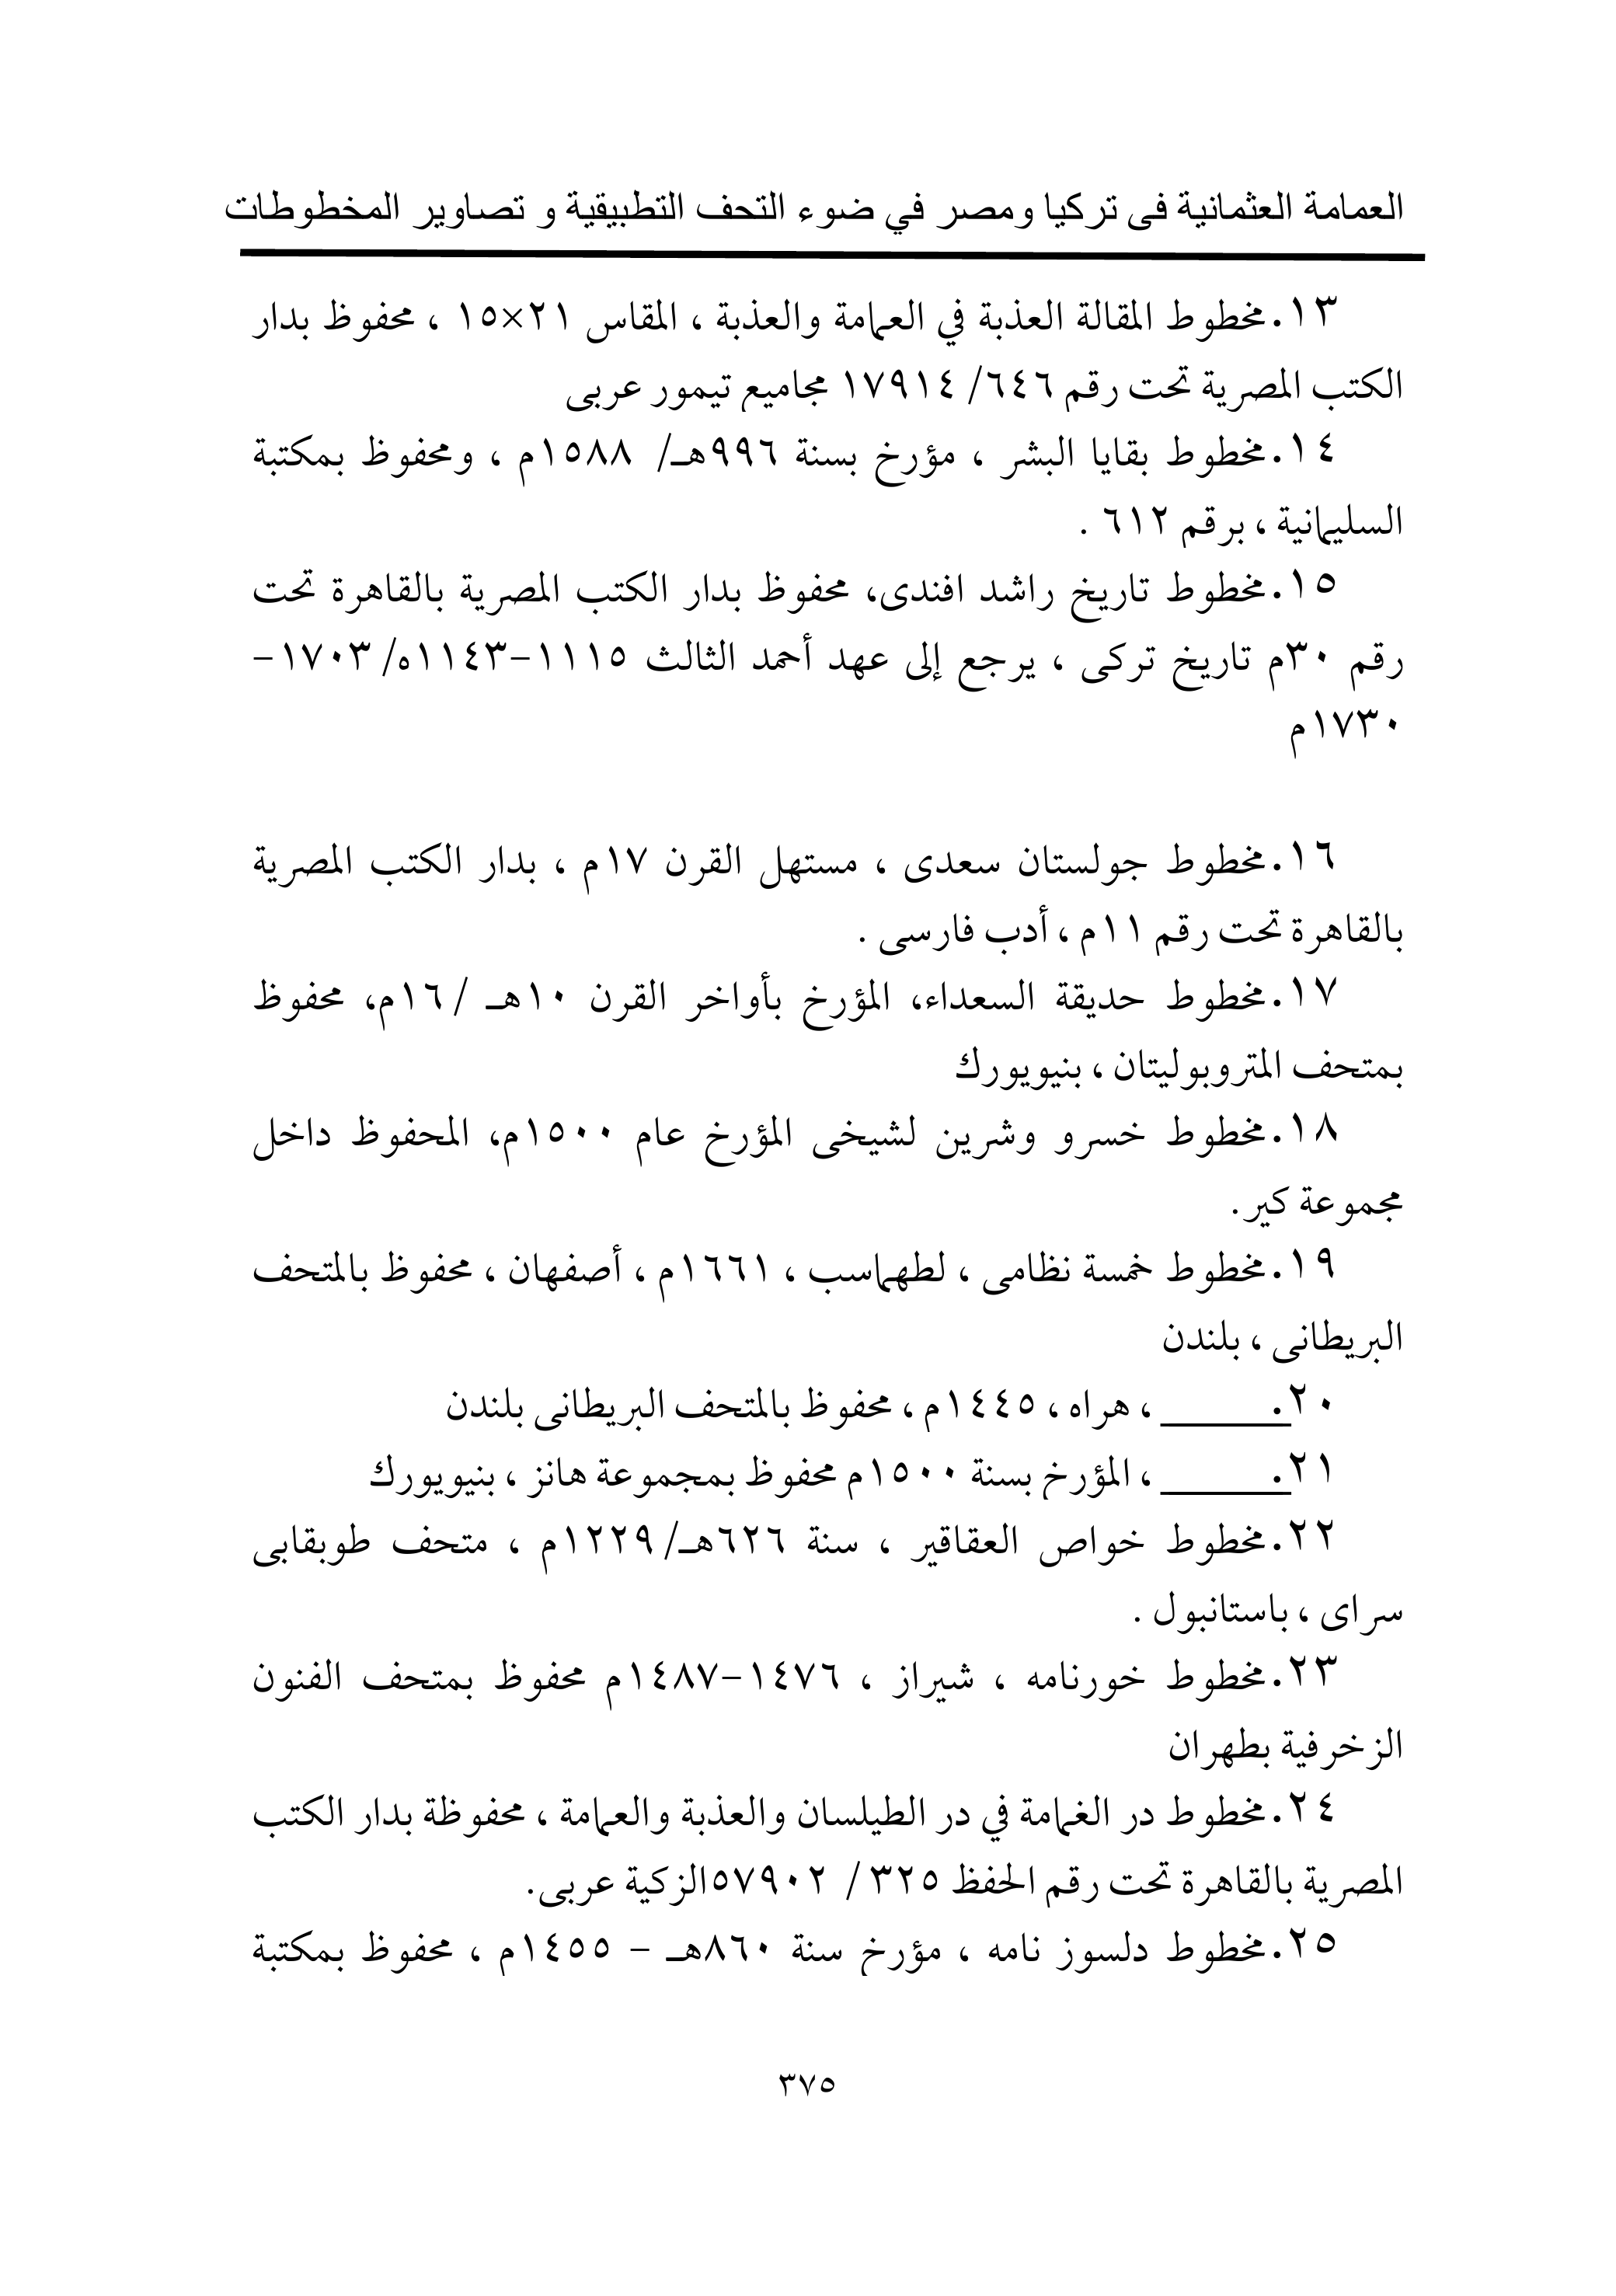 العمامة العثمانية فى تركيا ومصر في ضوء التحف التطبيقية و تصاوير المخطوطات
١٣.مخطوط المقالة العذبة في العمامة والعذبة ، المقاس ٢١×١٥ ، محفوظ بدار
الكتب المصرية تحت رقم ٦٤٦/ ١٧٩١٤ مجاميع تيمور عربى
١٤.مخطوط بقايا البشر ، مؤرخ بسنة ٩٩٦هـ/ ١٥٨٨م ، ومحفوظ بمكتبة
السليمانية ، برقم ٦١٢ .
١٥.مخطوط تاريخ راشد افندى، محفوظ بدار الكتب المصرية بالقاهرة تحت
رقم ٣٠م تاريخ تركى ، يرجع إلى عهد أحمد الثالث ١١١٥-١١٤٣ه/ ١٧٠٣-
١٧٣٠م
١٦.مخطوط جولستان سعدى ، مستهل القرن ١٧م ، بدار الكتب المصرية
بالقاهرة تحت رقم ١١م ، أدب فارسى .
١٧.مخطوط حديقة السعداء، المؤرخ بأواخر القرن ١٠هـ /١٦م، محفوظ
بمتحف المتروبوليتان ، بنيويورك
١٨.مخطوط خسرو وشرين لشيخى المؤرخ عام ١٥٠٠م، المحفوظ داخل
مجموعة كير.
١٩.مخطوط خمسة نظامى ، لطهماسب ، ١٦٦١م ، أصفهان ، محفوظ بالمتحف
البريطانى ، بلندن
٢٠.ــــــــــ ، هراه ، ١٤٤٥م ، محفوظ بالمتحف البريطانى بلندن
٢١.ــــــــــ ، المؤرخ بسنة ١٥٠٠م محفوظ بمجموعة هانز ، بنيويورك
٢٢.مخطوط خواص العقاقير ، سنة ٦٢٦هـ/١٢٢٩م ، متحف طوبقابى
سراى ، باستانبول .
٢٣.مخطوط خورنامه ، شيراز ، ١٤٧٦-١٤٨٧م محفوظ بمتحف الفنون
الزخرفية بطهران
٢٤.مخطوط در الغمامة في در الطيلسان والعذبة والعمامة ، محفوظة بدار الكتب
المصرية بالقاهرة تحت رقم الحفظ ٣٢٥ / ٥٧٩٠٢الزكية عربى.
٢٥.مخطوط دلسوز نامه ، مؤرخ سنة ٨٦٠هـ - ١٤٥٥م ، محفوظ بمكتبة
٣٧٥